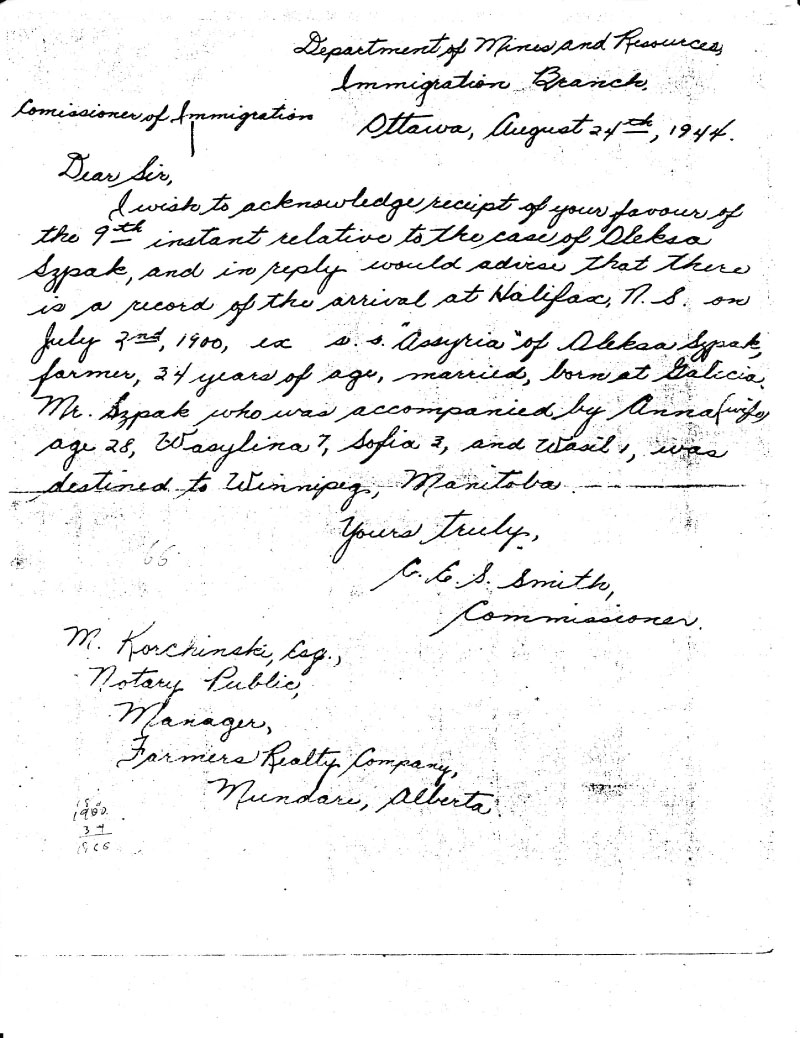 Department of Mines and Resources,
Immigration Branch,
Comissioner of Immigration
Ottawa, August 24th, 1944.
Dear Sir,
I wish to acknowledge receipt of your favour of
the 9th instant relative to the case of Oleksa
Szpak, and in reply would advise that there
is a record of the arrival at Halifax, N.S. on
July 2nd, 1900, ex s.s. "Assyria" of Oleksa Szpak,
farmer, 34 years of age, married, born at Galicia.
Mr. Szpak who was accompanied by Anna (wife)
age 28, Wasylina 7, Sofia 3, and Wasil 1, was
destined to Winnipeg, Manitoba.
Yours truly,
C. E. S. Smith,
Commissioner.
66
M. Korchinski, Esq.,
Notary Public,
Manager,
Farmers Realty Company,
Mundare, Alberta.
1900
34
1866